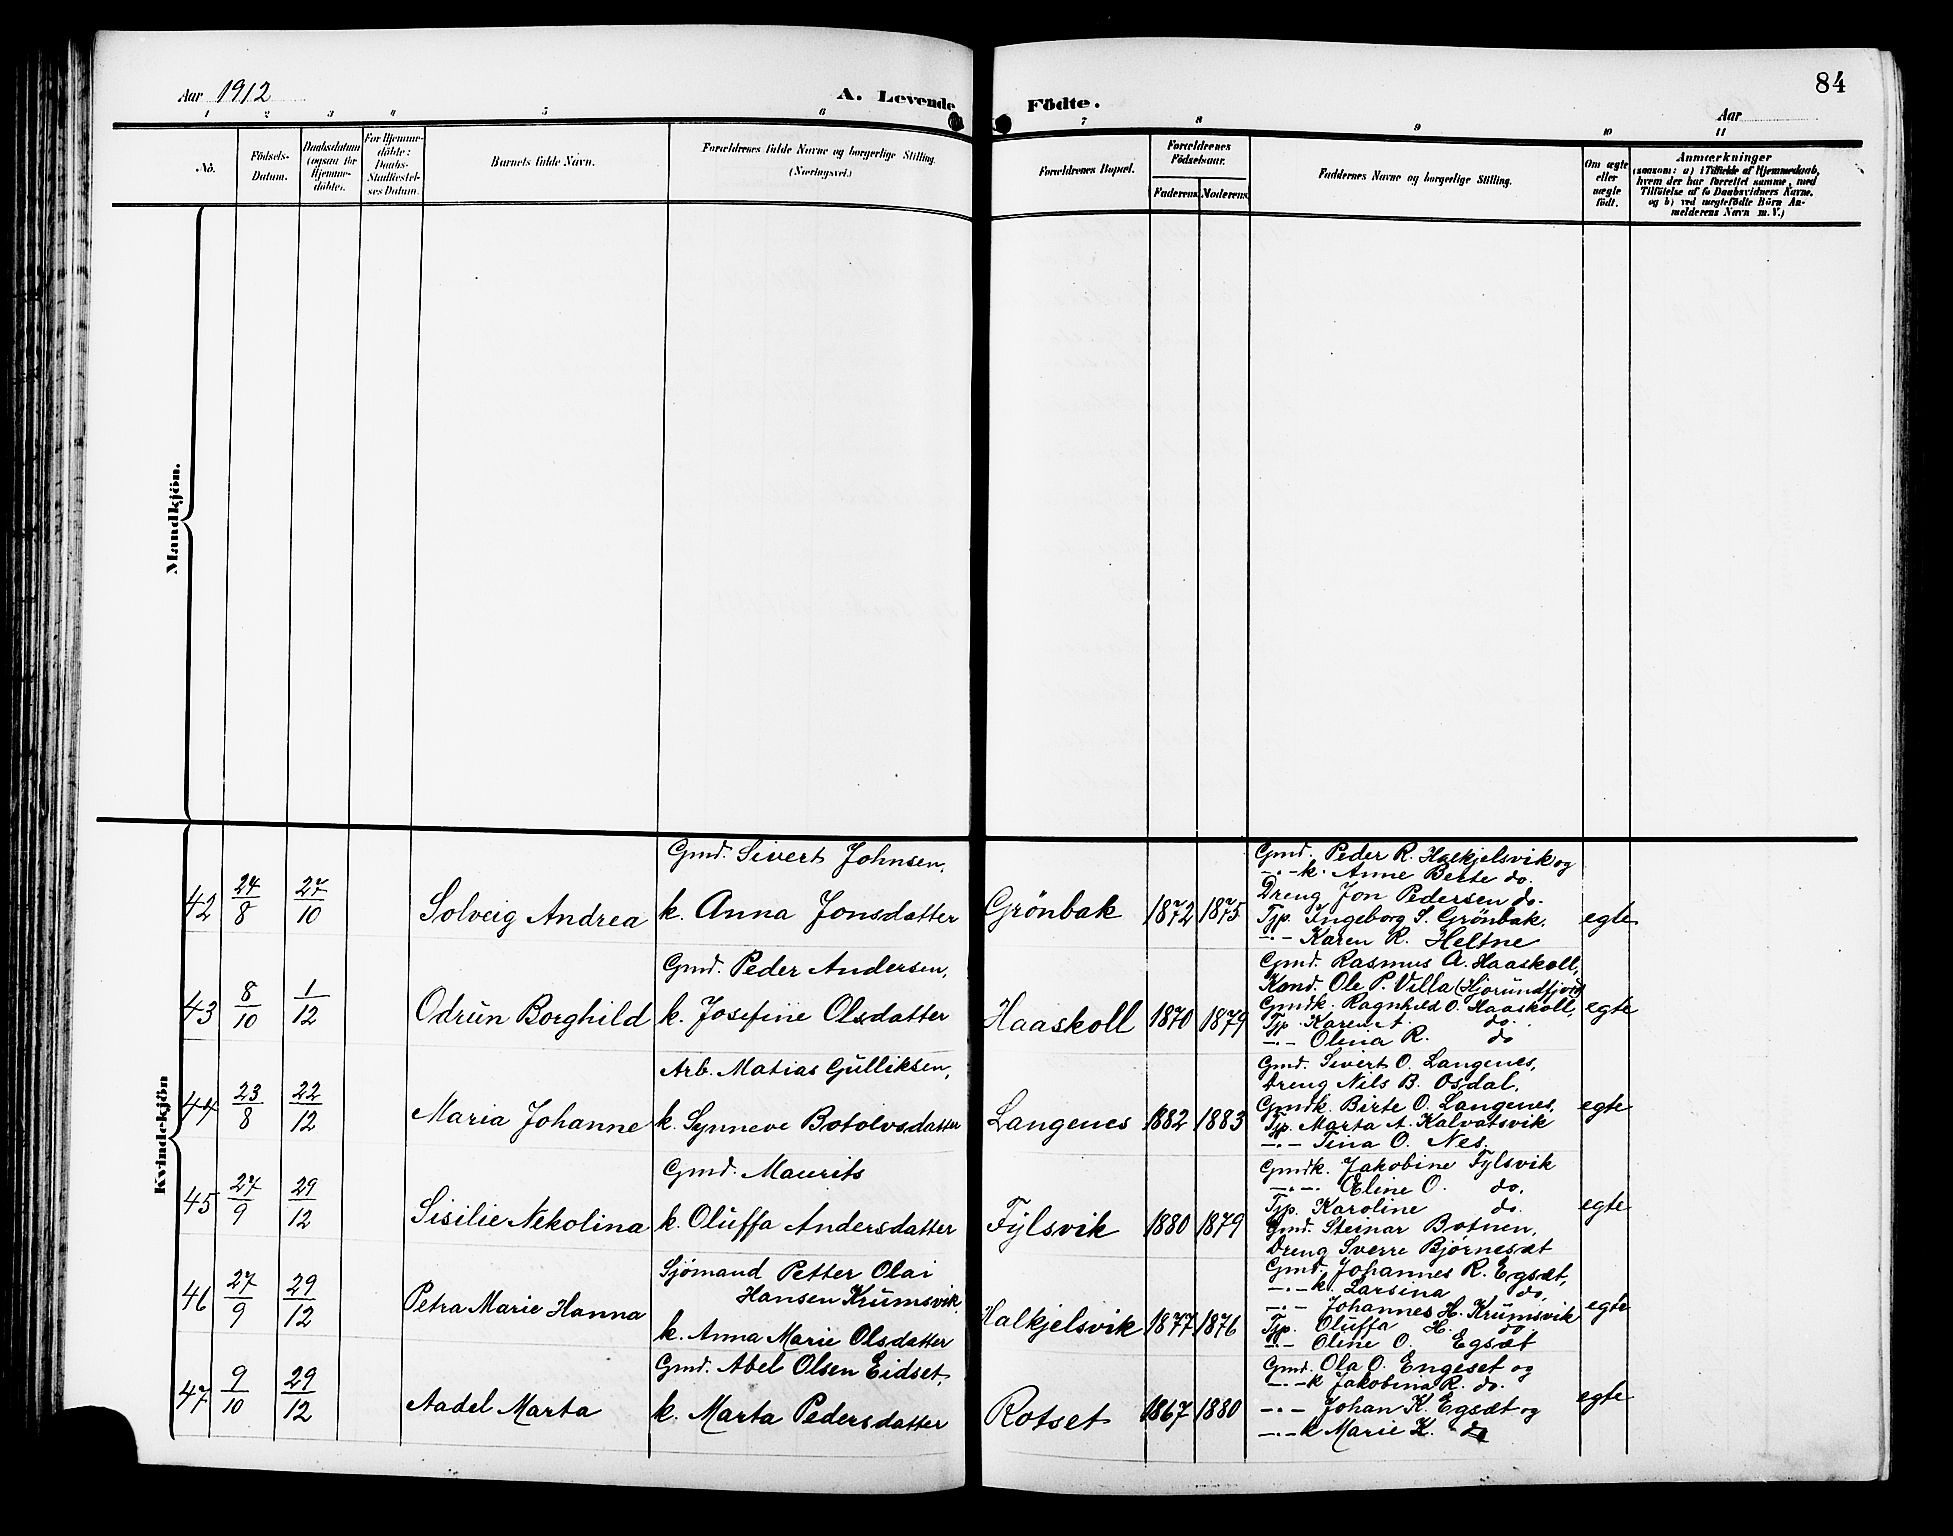 Aar 1912
A. Levende Födte.
84
Aar
1 2 3 4 5 6 7 8 9 10 11
No.
Födsels-Datum.
Daabsdatum (ogsaa for Hjemme-döbte).
For Hjemme-döbte: Daabs-Stadfæstel-ses Datum.
Barnets fulde Navn.
Forældrenes fulde Navne og borgerlige Stilling.
(Næringsvei.)
Forældrenes Bopæl.
Forældrenes Födselsaar.
Faderens. Moderens.
Faddernes Navne og borgerlige Stilling.
Om ægte eller uægte födt.
Anmærkninger
(saasom: a) i Tilfælde af Hjemmedaab,
hvem der har forrettet samme, med
Tilföielse af to Daabsvidners Navne.
og b) ved uægtefödte Börn An-
melderens Navn m. V.)
Mandkjön.
Kvindekjön
42 24/8 27/10 Solveig Andrea
Gmd. Sivert Johnsen,
k. Anna Jonsdatter
Grönbak 1872 1875
Gmd. Peder R. Halkjelsvik og
—·—k. Anne Berte do.
Dreng Jon Pedersen do.
Tjp. Ingeborg S. Grönbak.
—·— Karen R. Heltne
egte
43 8/10 1/12 Odrun Borghild
Gmd. Peder Andersen,
k. Josefine Olsdatter
Haaskoll 1870 1879
Gmd. Rasmus A. Haaskoll,
Kond. Ole P. Villa (Hjorundfjord)
Gmdk. Ragnhild O. Haaskoll,
Tjp. Karen A. do.
—·— Olina R. do
egte
44 23/8 22/12 Maria Johanne
Arb. Matias Gulliksen,
k. Synneve Botolvsdatter
Langenes 1882 1883
Gmd. Sivert O. Langenes,
Dreng Nils B. Osdal,
Gmdk. Birte O. Langenes,
Tjp. Marta A. Kalvatsvik
—·— Tina O. Nes.
egte
45 27/9 29/12 Sisilie Nekolina
Gmd. Maurits
k. Oluffa Andersdatter
Fylsvik 1880 1879
Gmdk. Jakobine Fylsvik
—·—·— Eline O. do.
Tjp. Karoline do.
Gmd. Steinar Botnen,
Dreng Sverre Bjørnesæt
egte
46 27/9 29/12 Petra Marie Hanna
Sjömand Petter Olai
Hansen Krumsvik,
k. Anna Marie Olsdatter
Halkjelsvik 1877 1876
Gmd. Johannes R. Egsæt,
—·—k. Larsina do,
—·— Johannes H. Krumsvik
Tjp. Oluffa H. do
—·— Oline O. Egsæt
egte
47 9/10 29/12 Aadel Marta
Gmd. Abel Olsen Eidset,
k. Marta Pedersdatter
Rotset 1867 1880
Gmd. Ola O. Engeset og
—·—k Jakobina R. do.
—·— Johan K. Egsæt og
—·—k Marie K. do
egte